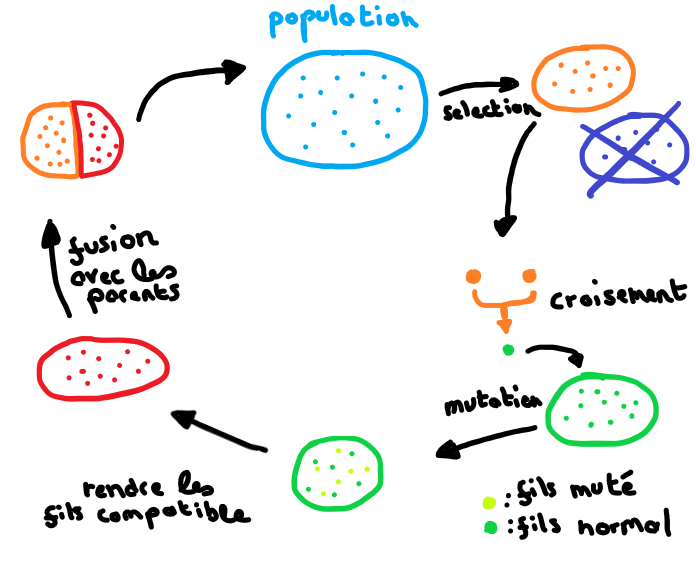 population
selection
croisement
mutation
: fils muté
: fils normal
rendre les
fils compatible
fusion
avec les
parents